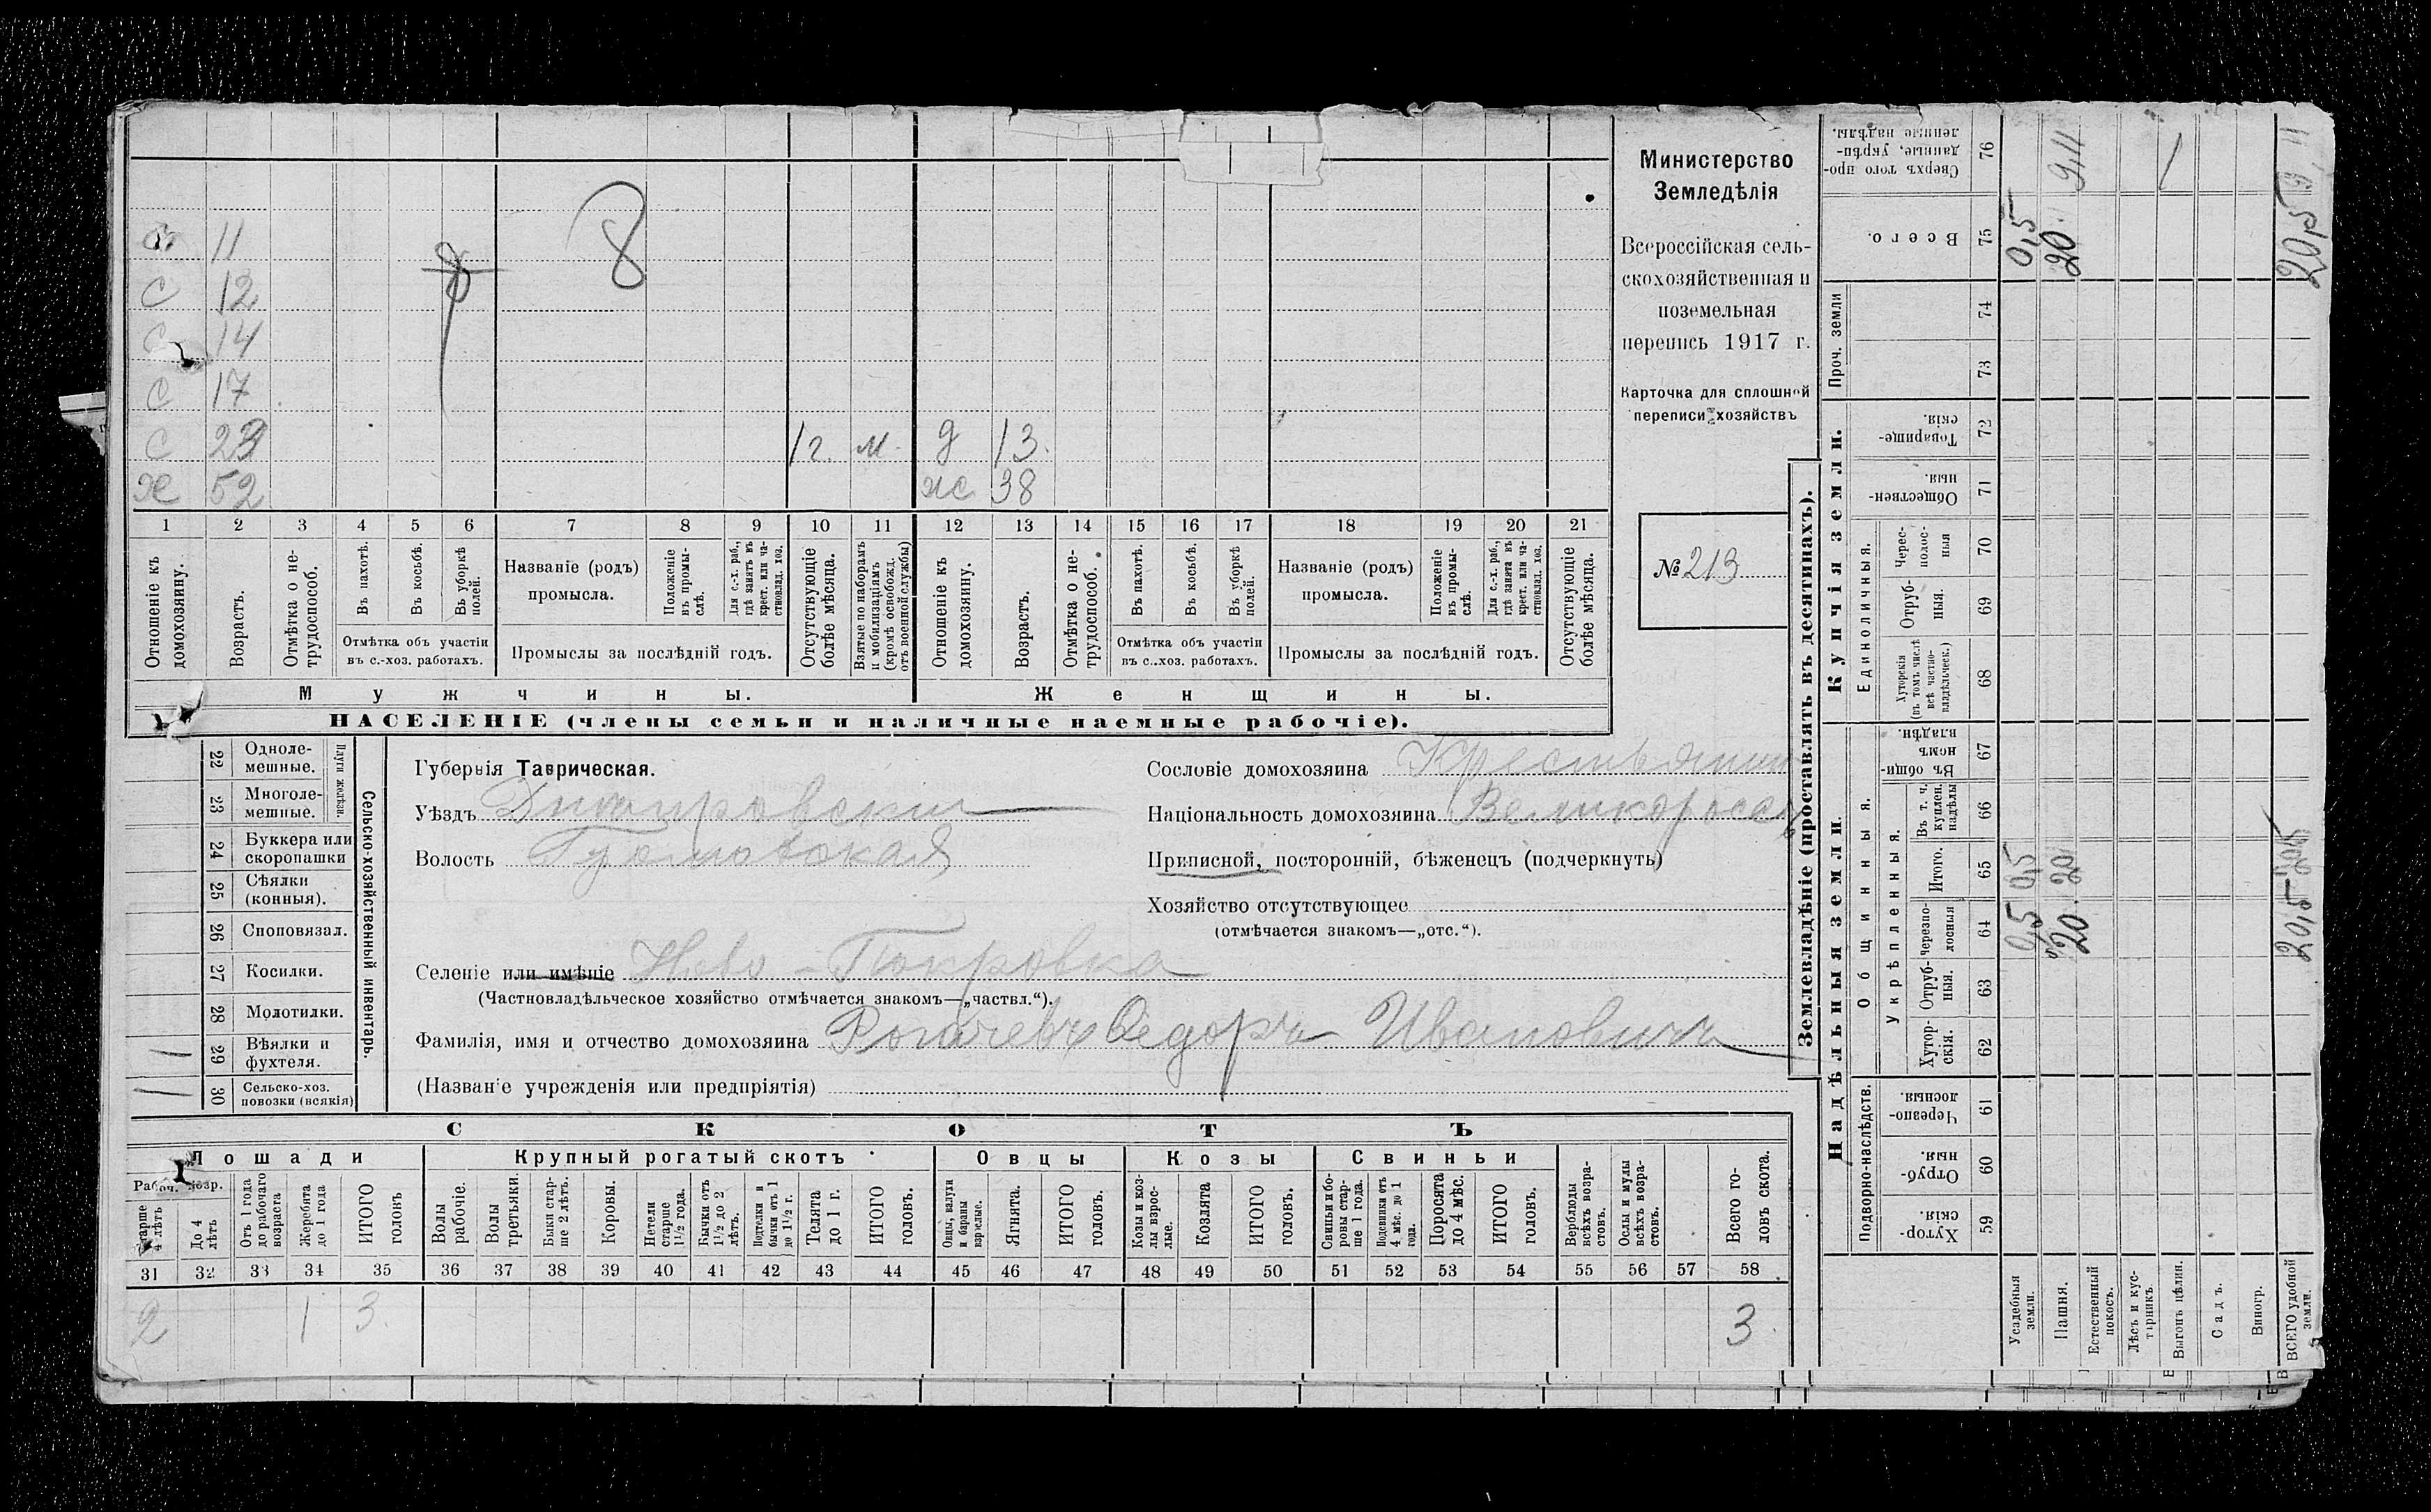 Министерство
Земледѣлія
Всероссійская сель-
скохозяйственная и
поземельная
перепись 1917 г.
Карточка для сплошной
переписи хозяйствъ
№ 213
11
С 12
С 14
С 17
С 23 1 г. м. д 13.
х 52 ж 38
8
1 2 3 4 5 6 7 8 9 10 11 12 13 14 15 16 17 18 19 20 21
Отношеніе къ домохозяину.
Возрастъ.
Отмѣтка о не-трудоспособ.
Въ пахотѣ.
Въ косьбѣ.
Въ уборкѣ полей.
Отмѣтка объ участіи въ с.-хоз. работахъ.
Названіе (родъ) промысла.
Положеніе въ промы-слѣ.
Для с.-х. раб., гдѣ занятъ въ крест. или ча-стновлад. хоз.
Промыслы за послѣдній годъ.
Отсутствующіе болѣе мѣсяца.
Взятые по наборамъ и мобилизаціямъ (кромѣ освобожд. отъ военной службы)
Отношеніе къ домохозяину.
Возрастъ.
Отмѣтка о не-трудоспособ.
Въ пахотѣ.
Въ косьбѣ.
Въ уборкѣ полей.
Отмѣтка объ участіи въ с..хоз. работахъ.
Названіе (родъ) промысла.
Положеніе въ промы-слѣ.
Для с.-х. раб., гдѣ занята въ крест. или ча-стновлад. хоз.
Промыслы за послѣдній годъ.
Отсутствующіе болѣе мѣсяца.
Мужчины. Женщины.
НАСЕЛЕНІЕ (члены семьи и наличные наемные рабочіе).
Сельско-хозяйственный инвентарь.
Плуги желѣзн.
22 Одноле-мешные.
23 Многоле-мешные.
24 Буккера или скоропашки
25 Сѣялки (конныя).
26 Сноповязал.
27 Косилки.
28 Молотилки.
29 Вѣялки и фухтеля. 1
30 Сельско-хоз. повозки (всякія) 1
Губернія Таврическая.
Уѣздъ Днѣпровскій
Волость
Селеніе или имѣніе Ново-Покровка
(Частновладѣльческое хозяйство отмѣчается знакомъ—„частвл.“).
Фамилія, имя и отчество домохозяина Рогачевъ Ѳедоръ Ивановичъ
(Названіе учрежденія или предпріятія)
Сословіе домохозяина Крестьянин
Національность домохозяина Великороссъ
Приписной, посторонній, бѣженецъ (подчеркнуть)
Хозяйство отсутствующее
(отмѣчается знакомъ—„отс.“).
СКОТЪ
Лошади Крупный рогатый скотъ Овцы Козы Свиньи
Рабоч. возр.
Старше 4 лѣтъ
До 4 лѣтъ
Отъ 1 года до рабочаго возраста
Жеребята до 1 года
ИТОГО головъ
Волы рабочіе.
Волы третьяки.
Быки стар-ше 2 лѣтъ.
Коровы.
Нетели старше 1½ года.
Бычки отъ 1½ до 2 лѣтъ.
Подтелки и бычки отъ 1 до 1½ г.
Телята до 1 г.
ИТОГО головъ.
Овцы, валухи и бараны взрослые.
Ягнята.
ИТОГО головъ.
Козы и коз-лы взрос-лые.
Козлята
ИТОГО головъ.
Свиньи и бо-ровы стар-ше 1 года.
Подсвинки отъ 4 мѣс. до 1 года.
Поросята до 4 мѣс.
ИТОГО головъ.
Верблюды всѣхъ возра-стовъ.
Ослы и мулы всѣхъ возра-стовъ.
Всего го-ловъ скота.
31 32 33 34 35 36 37 38 39 40 41 42 43 44 45 46 47 48 49 50 51 52 53 54 55 56 57 58
2 1 3 3
Землевладѣніе (проставлять въ десятинахъ).
Надѣльныя земли
Купчія земли.
Проч. земли
Подворно-наслѣдств.
Общинныя.
Укрѣпленныя.
Единоличныя.
Сверхъ того про-данные, укрѣп-ленные надѣлы. 76
Всего. 75
74
73
Товарище-скія. 72
Обществен-ныя. 71
Черес-полос-ныя 70
Отруб-ныя. 69
Хуторскія (въ томъ числѣ всѣ частно-владѣльческ.) 68
Въ общи-номъ владѣн. 67
Въ т. ч. куплен. надѣлы 66
Итого. 65
Черезпо-лосныя 64
Отруб-ныя. 63
Хутор-скія. 62
Черезпо-лосныя. 61
Отруб-ныя. 60
Хутор-скія. 59
Усадебныя земли. 0,5 0,5 0,5
Пашня. 20 20 20 9,11
Естественный покосъ.
Лѣсъ и кус-тарникъ.
Выгонъ цѣлин.
Садъ.
Виногр.
ВСЕГО удобной земли. 20,5 20,5 20,5 9,11